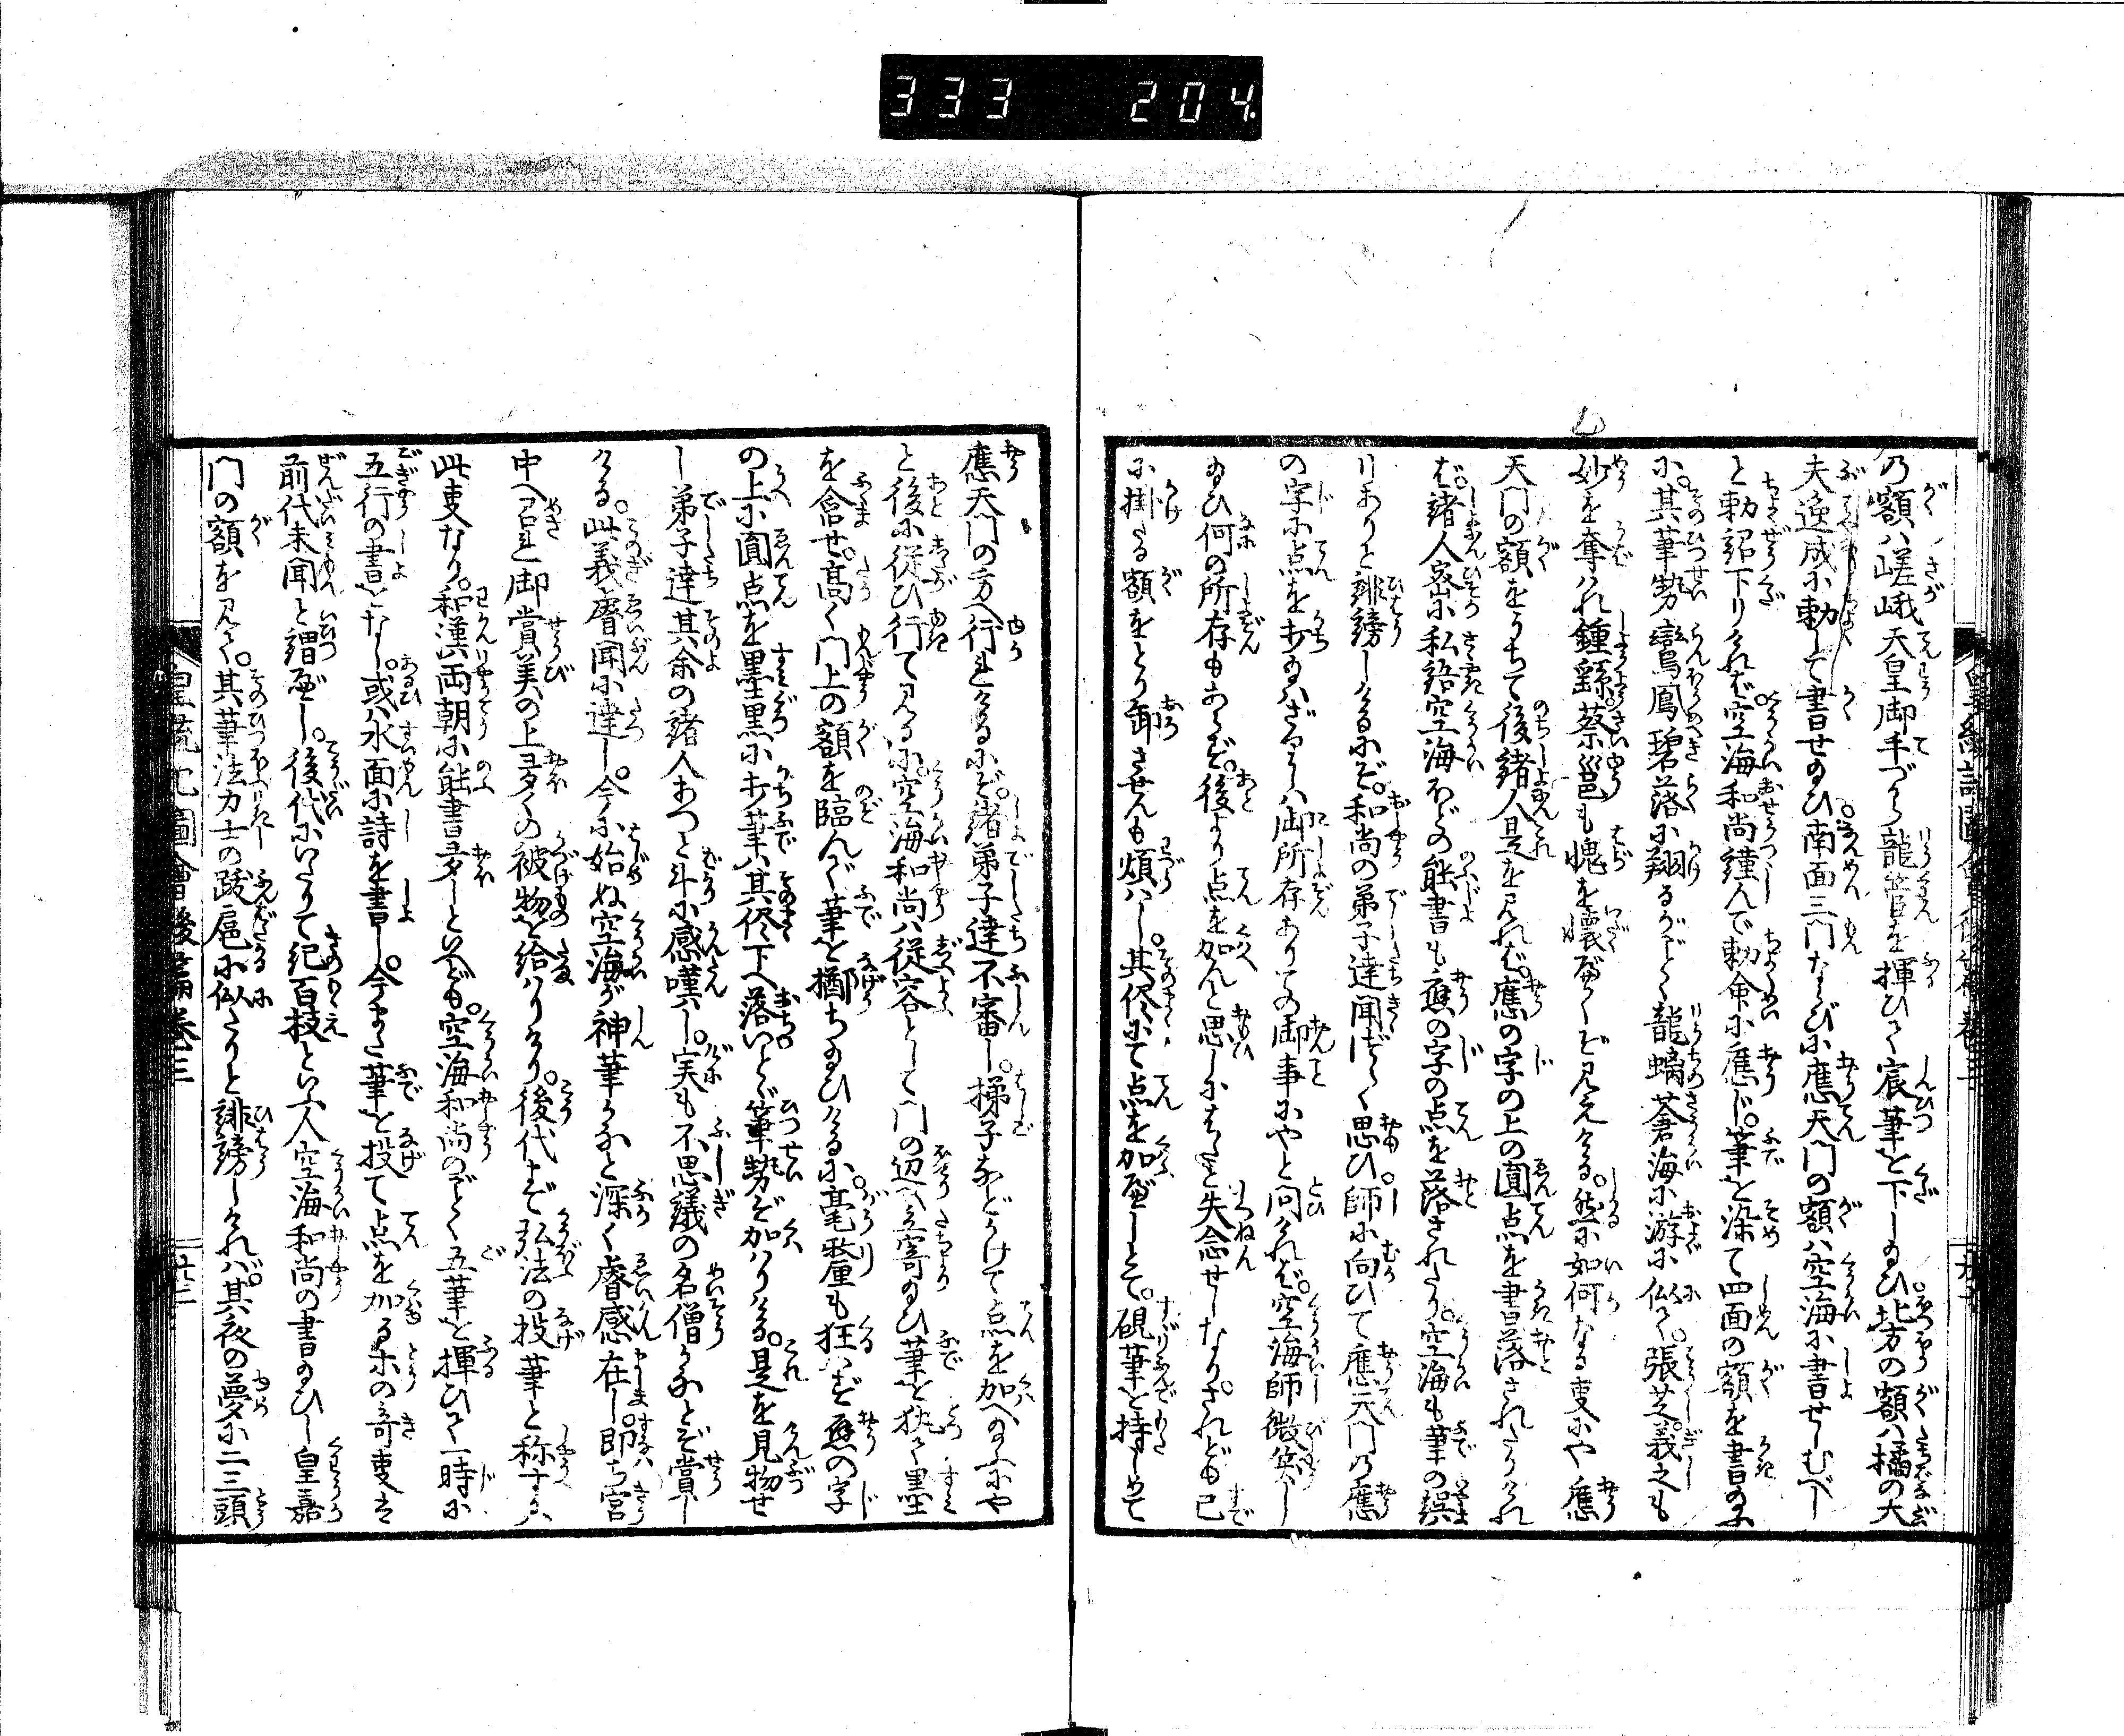 333 204.
乃額ハ嵯峨天皇御手づから龍管を揮ひて宸筆を下し玉ひ北方の額ハ橘の大
夫逸成に勅して書せ玉ひ南面三門ならびに應天門の額ハ空海に書せしむべし
と勅詔下りけれバ空海和尚謹んで勅命に應じ筆を染て四面の額を書玉ふ
に其筆勢鸞鳳碧落に翔るがごとく龍螭蒼海に游に似て張芝羲之も
妙を奪れ鍾繇蔡邕も愧を懐べくぞ見えける然に如何なる叓にや應
天門の額をうちて後諸人是を見れバ應の字の上の圓点を書落されたりけれ
バ諸人密に私語空海ほどの能書も應の字の点を落されたり空海も筆の誤
りありと誹謗しけるにぞ和尚の弟子達聞づらく思ひ師に向ひて應天門乃應
の字に点を打玉ハざるハ御所存ありての御事にやと問けれバ空海師微笑し
玉ひ何の所存もあらず後より点を加んと思しにはたと失念せしなりされども已
に掛たる額をとり卸させんも煩ハし其侭にて点を加べしとて硯筆を持しめて
應天門の方へ行れけるにぞ諸弟子達不審し梯子などかけて点を加へ玉ふにや
と後に従ひ行て見るに空海和尚ハ従容として門の辺へ立寄玉ひ筆を把て墨
を含せ高く門上の額を臨んで筆を擲ち玉ひけるに毫釐も狂ハず應の字
の上に圓点を墨黒に打筆ハ其侭下へ落いとゞ筆勢ぞ加ハりける是を見物せ
し弟子達其余の諸人あつと斗に感嘆し実も不思議の名僧かなとぞ賞し
ける此義睿聞に達し今に始ぬ空海が神筆かなと深く睿感在し即ち宮
中へ召れ御賞美の上多くの被物を給ハりけり後代まで弘法の投筆と称するハ
此叓なり和漢両朝に能書多しといへども空海和尚のごとく五筆を揮ひて一時に
五行の書をなし或ハ水面に詩を書し今また筆を投て点を加る木の奇叓は
前代未聞と謂べし後代にいたりて紀百枝といふ人空海和尚の書玉ひし皇嘉
門の額を見て其筆法力士の跋扈に似たりと誹謗しけれバ其夜の夢に二三頭
皇統記圖會後篇巻三
廿三